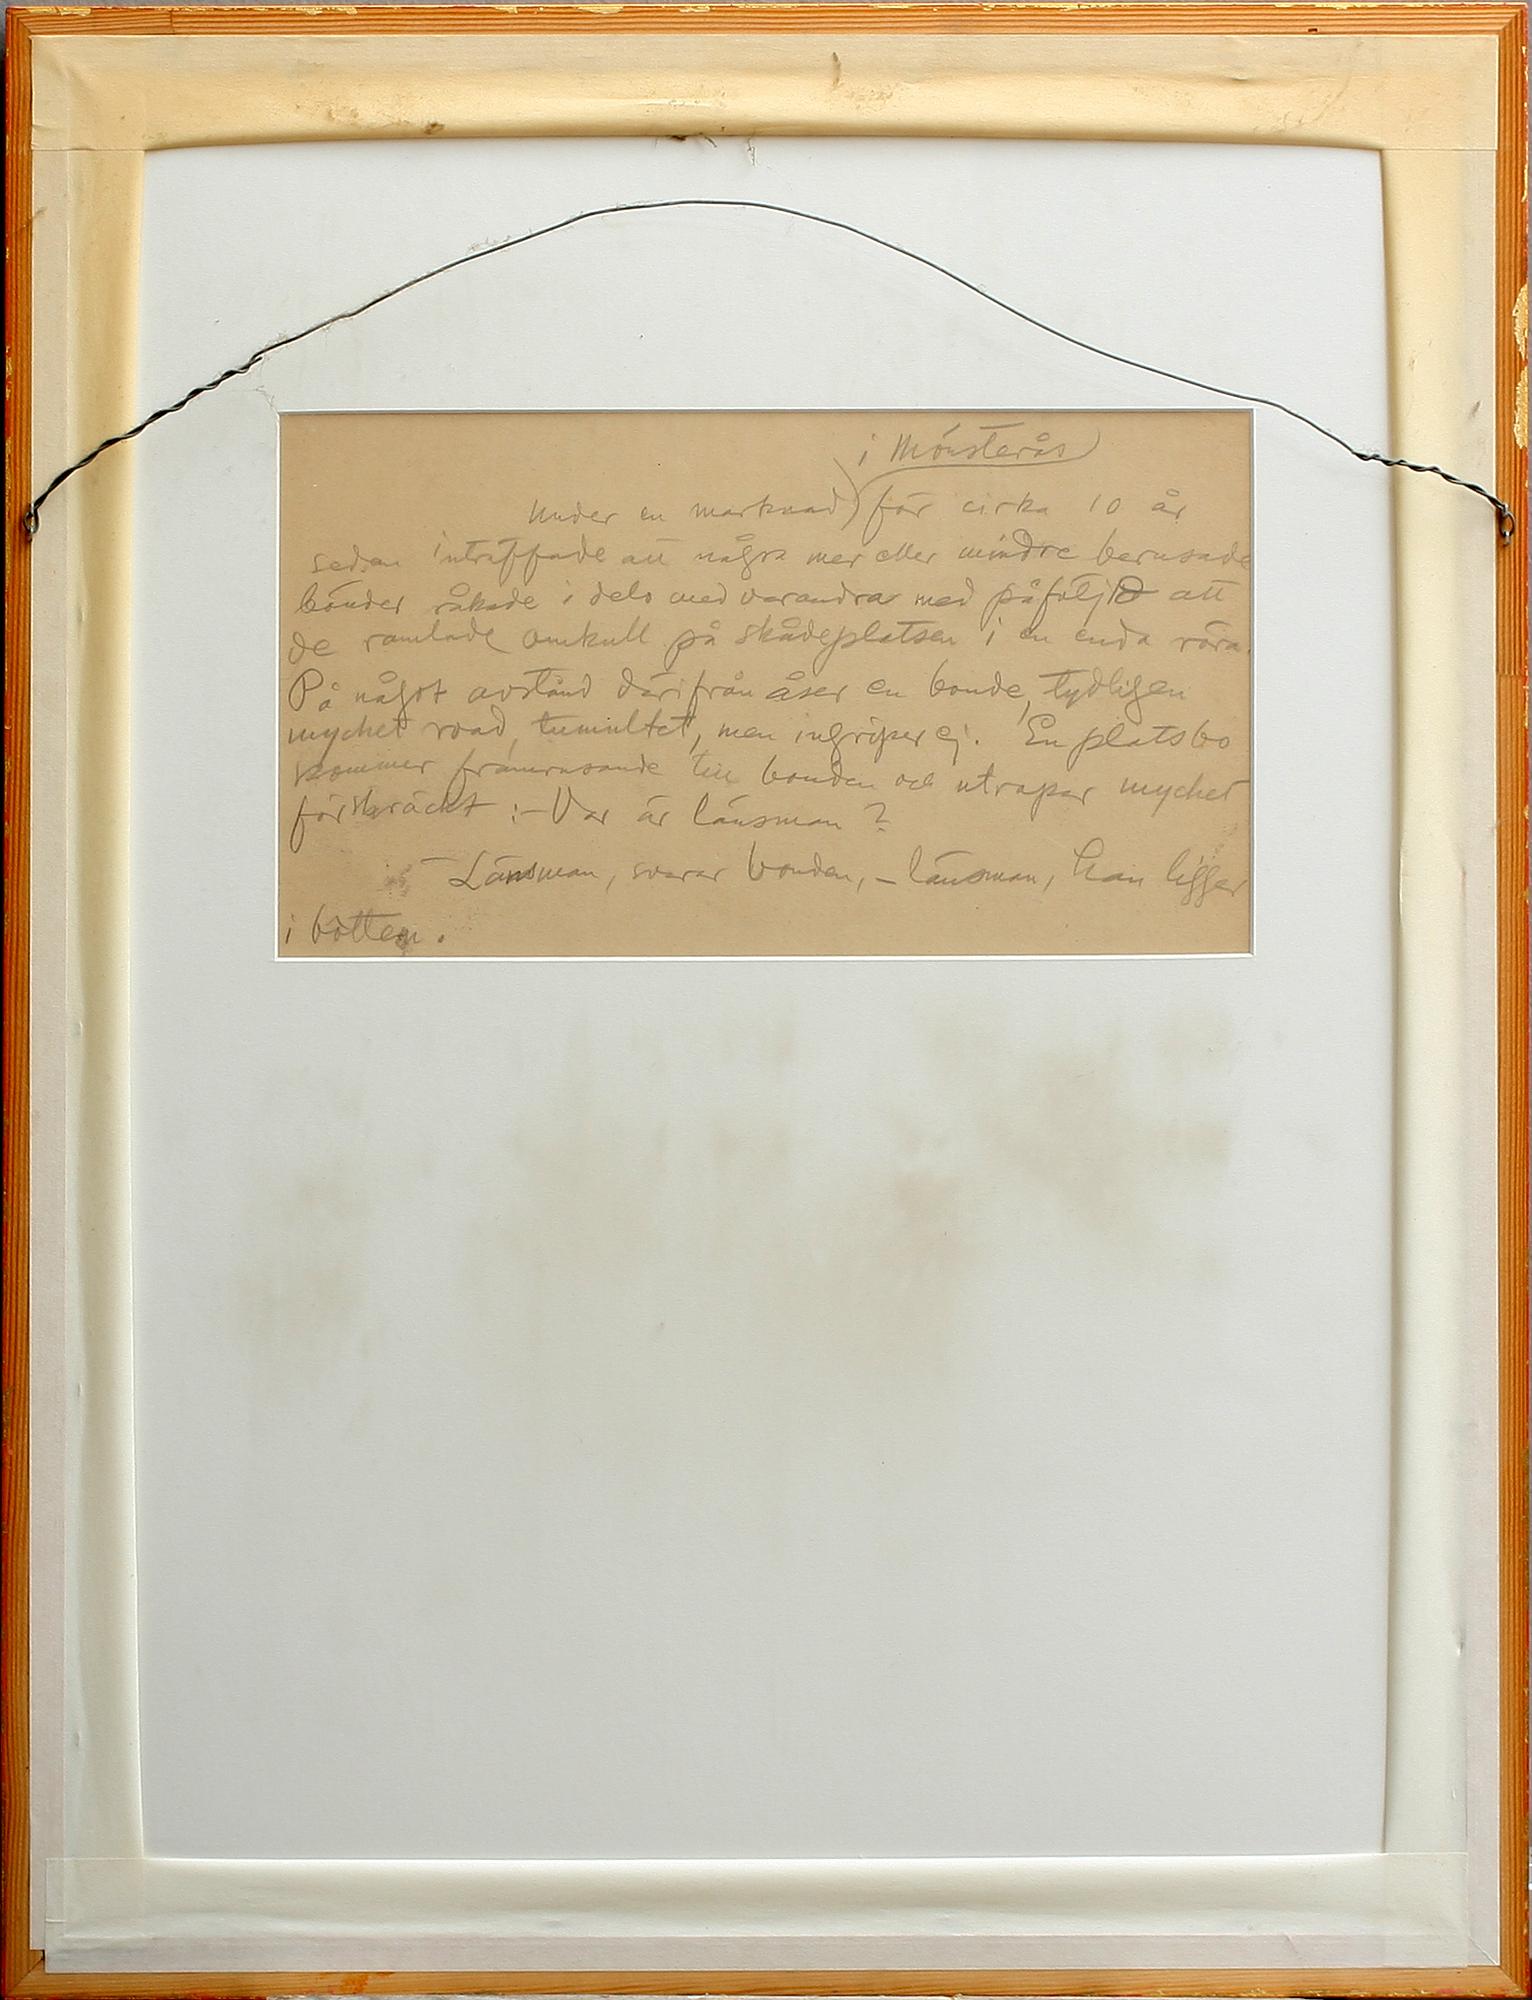 i Mönsterås
Under en marknad för cirka 10 år
sedan inträffade att några mer eller mindre berusade
bönder råkade i delo med varandra med påföljd att
de ramlade omkull på skådeplatsen i en enda röra.
På något avstånd därifrån åser en bonde, tydligen
mycket road, tumultet, men ingriper ej. En platsbo
kommer framrusande till bonden och utropar mycket
förskräckt :- Var är länsman ?
- Länsman, svarar bonden, - länsman, han ligger
i botten.